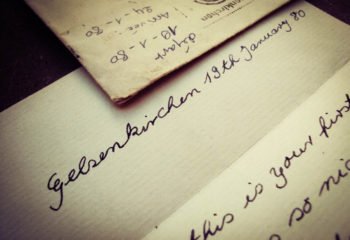 24-1-80
Arrivée:
10-1-80
départ
Gelsenkirchen 19th January 80
this is your first
so ni